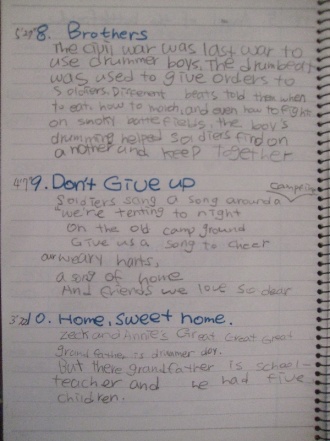 5:29 8. Brothers
The civil war was last war to
use drummer boys. The drumbeat
was used to give orders to
soldiers. Different beats told them when
to eat, how to march, and even how to fight
on smoky battlefields, the boy's
drumming helped soldiers find on
another and keep together
4:17 9. Don't Give up
Camping
Soldiers song a song around a
"We're tenting to night
On the old camp ground
Give us a song to cheer
our weary harts,
a song of home
And friends we love so dear
10. Home, sweet home.
Zeck and Annie's Great Great Great
grand father is drummer day.
But there grandfather is school-
teacher and we had five
children.